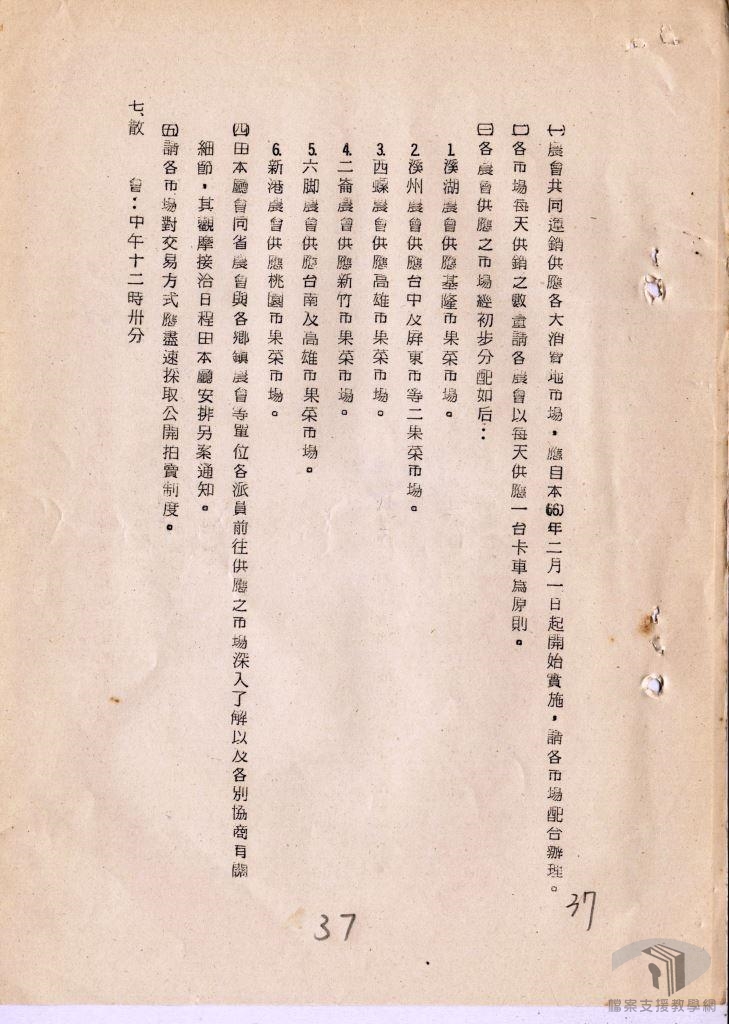 ㈠農會共同運銷供應各大消費地市場，應自本(66)年二月一日起開始實施，請各市場配合辦理。
㈡各市場每天供銷之數量請各農會以每天供應一台卡車為原則。
㈢各農會供應之市場經初步分配如后：
1.溪湖農會供應基隆市果菜市場。
2.溪州農會供應台中及屏東市等二果菜市場。
3.西螺農會供應高雄市果菜市場。
4.二崙農會供應新竹市果菜市場。
5.六脚農會供應台南及高雄市果菜市場。
6.新港農會供應桃園市果菜市場。
㈣由本廳會同省農會與各鄉鎮農會等單位各派員前往供應之市場深入了解以及各別協商有關
細節，其觀摩接洽日程由本廳安排另案通知。
㈤請各市場對交易方式應盡速採取公開拍賣制度。
七、散　會：中午十二時卅分
37
37
檔案支援教學網